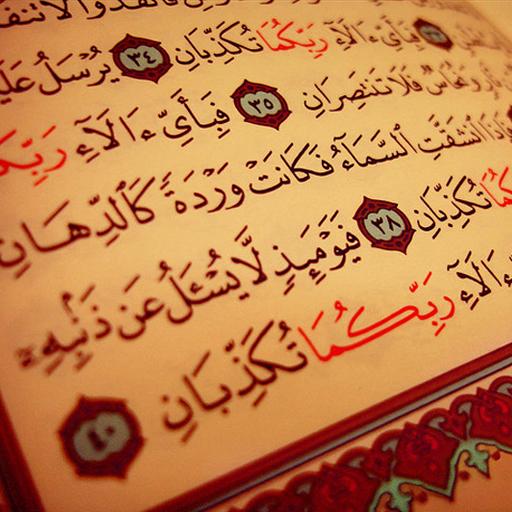 فَٱنفُذُوا۟ لَا تَنفُذُ
فَبِأَىِّ ءَالَآءِ رَبِّكُمَا تُكَذِّبَانِ ٣٤ يُرْسَلُ عَلَيْ
نَّارٍ وَنُحَاسٌ فَلَا تَنتَصِرَانِ ٣٥ فَبِأَىِّ ءَالَآءِ رَبِّكُ
فَإِذَا ٱنشَقَّتِ ٱلسَّمَآءُ فَكَانَتْ وَرْدَةً كَٱلدِّهَانِ
كُمَا تُكَذِّبَانِ ٣٨ فَيَوْمَئِذٍ لَّا يُسْـَٔلُ عَن ذَنۢبِهِۦٓ
ءَالَآءِ رَبِّكُمَا تُكَذِّبَانِ ٤٠